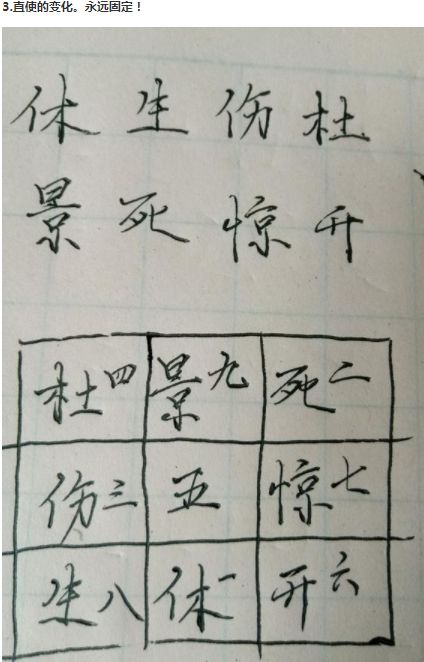 3.直使的变化。永远固定！
休 生 伤 杜
景 死 惊 开
杜四 景九 死二
伤三 五 惊七
生八 休一 开六